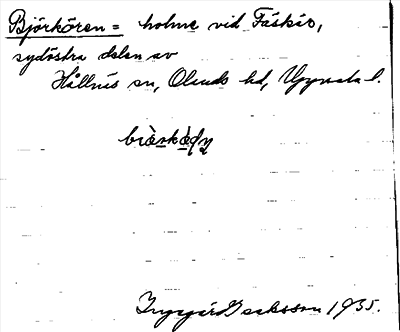 Björkören = holme vid Fäskäs,
sydöstra delen av
Hållnäs sn, Olands hd, Uppsala l.
Ingegär Isaksson 1935.